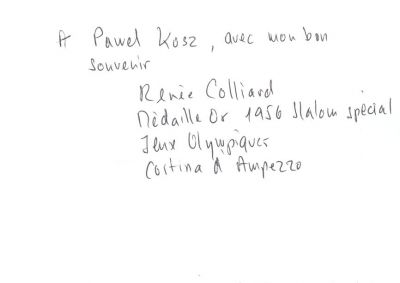 A Pawel Kosz, avec mon bon
souvenir
Renée Colliard
Médaille Or 1956 Slalom spécial
Jeux Olympiques
Cortina d'Ampezzo